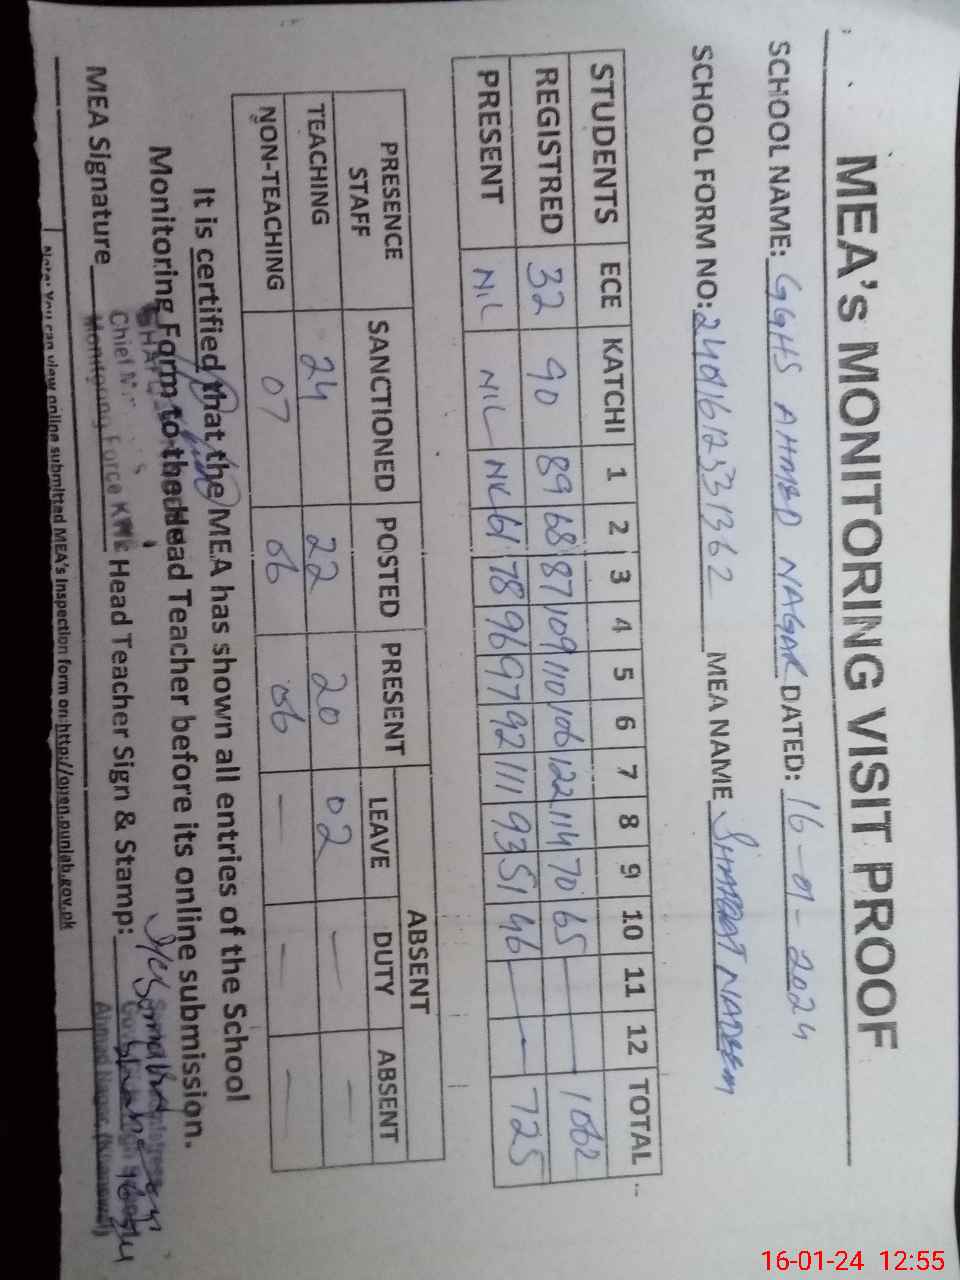 MEA's MONITORING VISIT PROOF
SCHOOL NAME: GGHS AHMED NAGAR DATED: 16-01-2024
SCHOOL FORM NO: MEA NAME NADEEM
STUDENTS ECE KATCHI 1 2 3 4 5 6 7 8 9 10 11 12 TOTAL
REGISTRED 32 90 89 68 87 109 110 106 122 114 70 65 — 1062
PRESENT NIL NIL NIL 61 78 96 97 92 111 93 51 46 — 725
PRESENCE STAFF SANCTIONED POSTED PRESENT ABSENT
LEAVE DUTY ABSENT
TEACHING 24 22 20 02 — —
NON-TEACHING 07 06 06 — — —
It is certified that the MEA has shown all entries of the School
Monitoring Form to the Head Teacher before its online submission.
MEA Signature Head Teacher Sign & Stamp:
Chief
Monitoring Force
Ahmad Nagar
Note: You can view online submitted MEA's Inspection form on:http://open.punjab.gov.pk
16-01-24 12:55